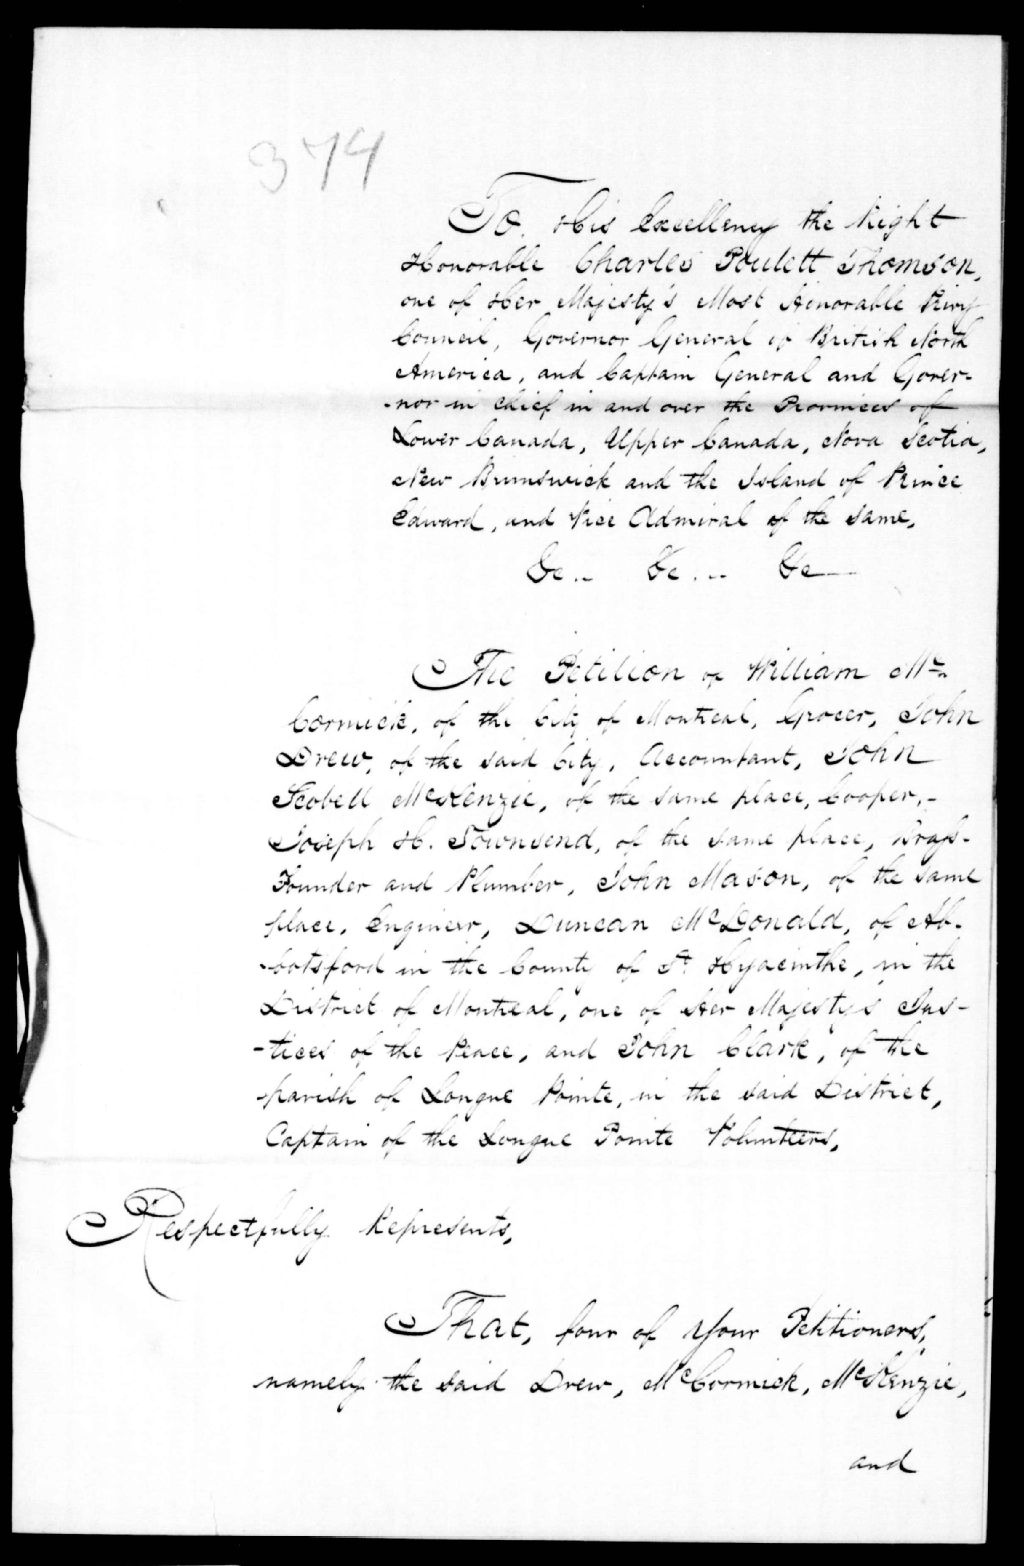 374
To His Excellency the Right
Honorable Charles Poulett Thomson,
one of Her Majesty's Most Honorable Privy
Council, Governor General of British North
America, and Captain General and Gover-
-nor in chief in and over the Provinces of
Lower Canada, Upper Canada, Nova Scotia,
New Brunswick and the Island of Prince
Edward, and Vice Admiral of the same,
&c.. &c... &c—
The Petition of William Mc
Cormick, of the City of Montreal, Grocer, John
Drew, of the said City, Accountant, John
Scobell McKenzie, of the same place, Cooper,-
Joseph H. Townsend, of the same place, Brass-
Founder and Plumber, John Mason, of the same
place, Engineer, Duncan McDonald, of Ab-
-botsford in the County of St Hyacinthe, in the
District of Montreal, one of Her Majesty's Jus-
-tices of the Peace, and John Clark, of the
parish of Longue Pointe, in the said District,
Captain of the Longue Pointe Volunteers,
Respectfully Represents,
That, four of Your Petitioners,
namely the said Drew, McCormick, McKenzie,
and